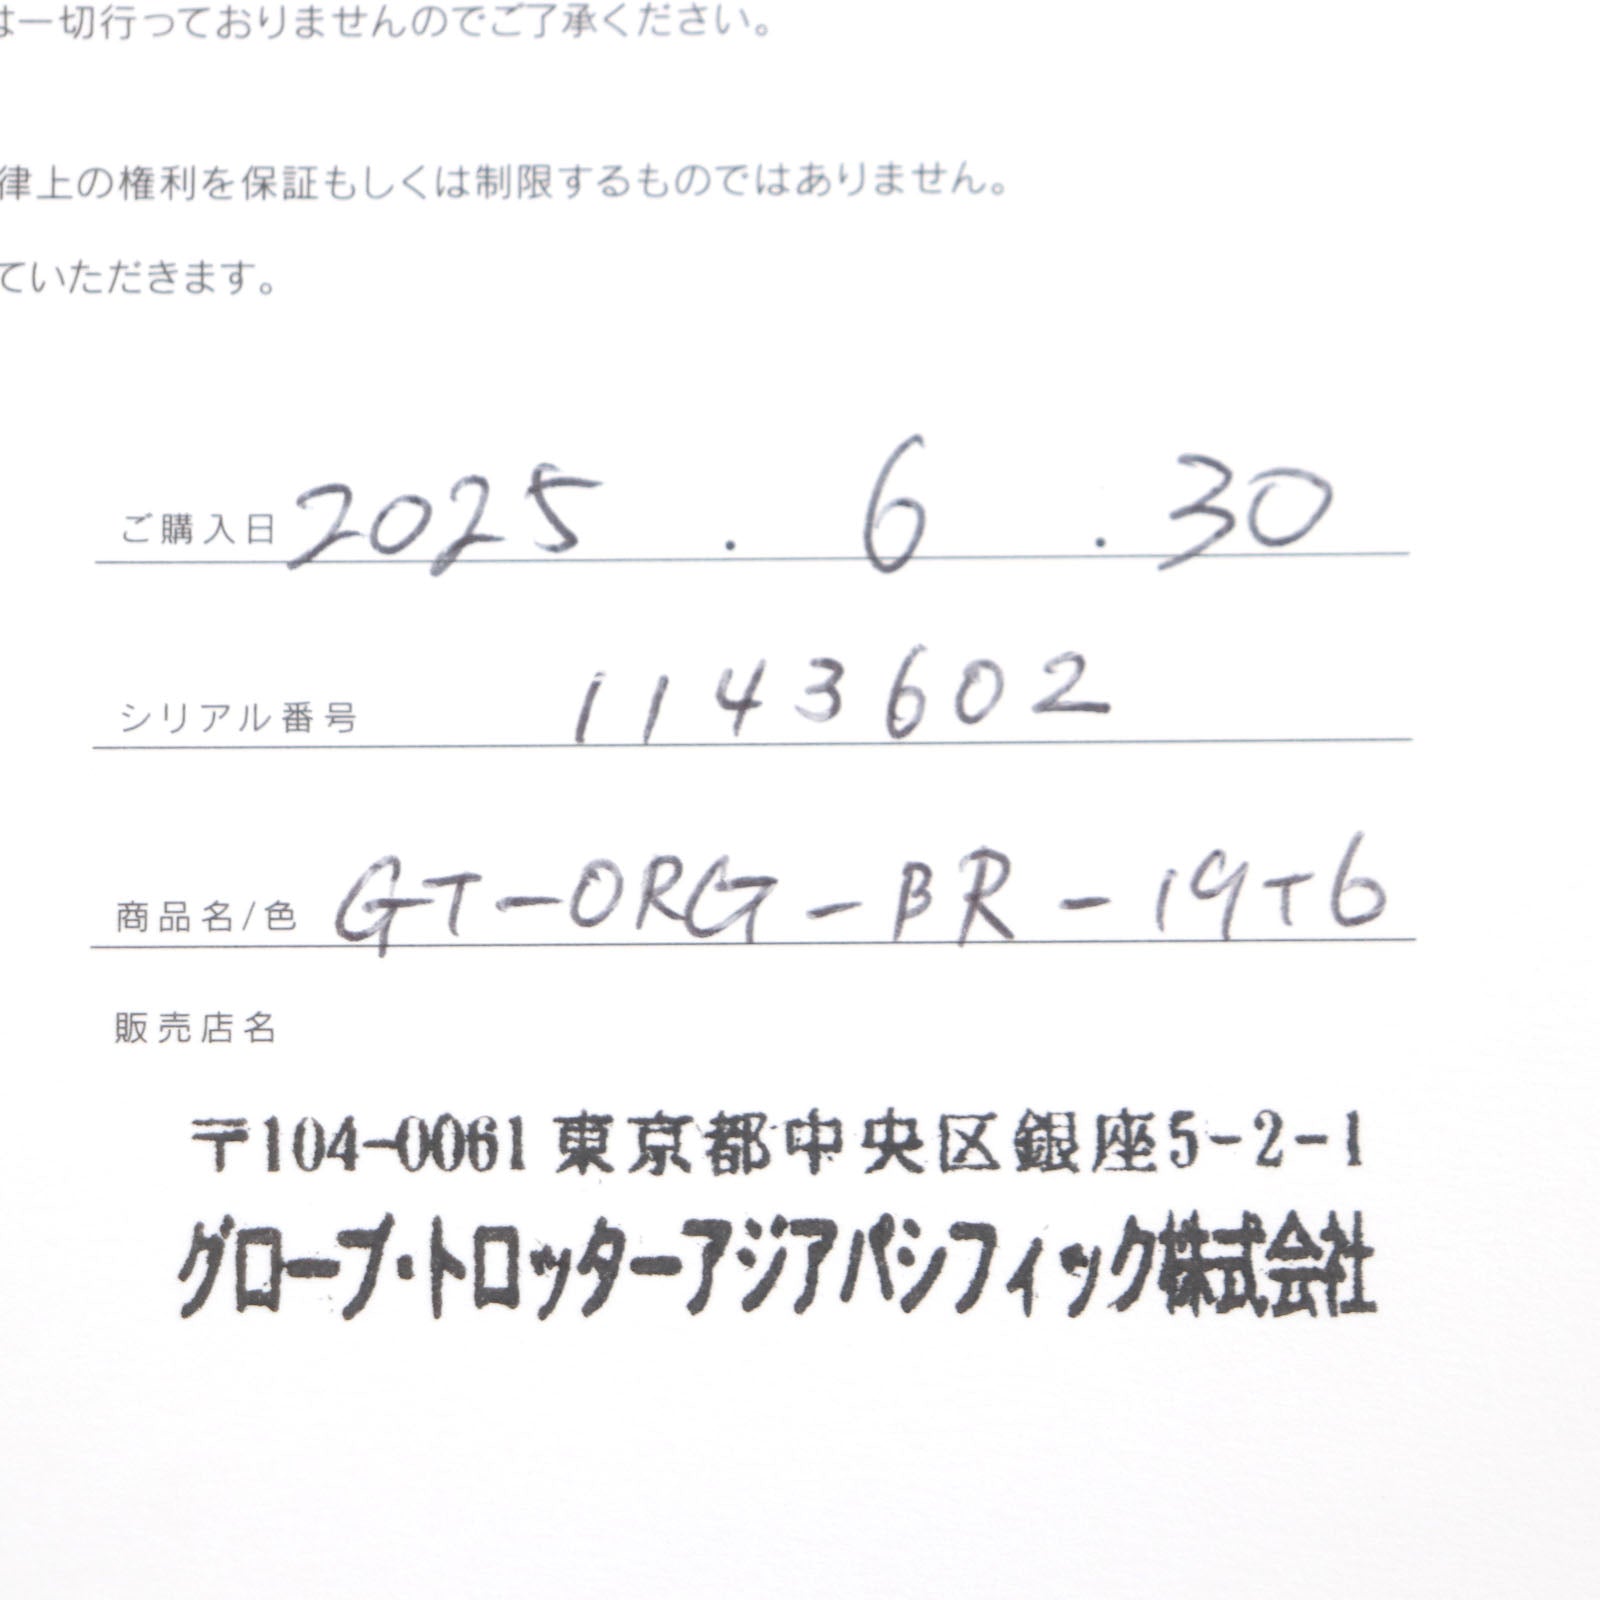 は一切行っておりませんのでご了承ください。
律上の権利を保証もしくは制限するものではありません。
ていただきます。
ご購入日 2025 . 6 . 30
シリアル番号 1143602
商品名/色 GT-ORG-BR-19T6
販売店名
〒104-0061 東京都中央区銀座5-2-1
グローブ・トロッターアジアパシフィック株式会社